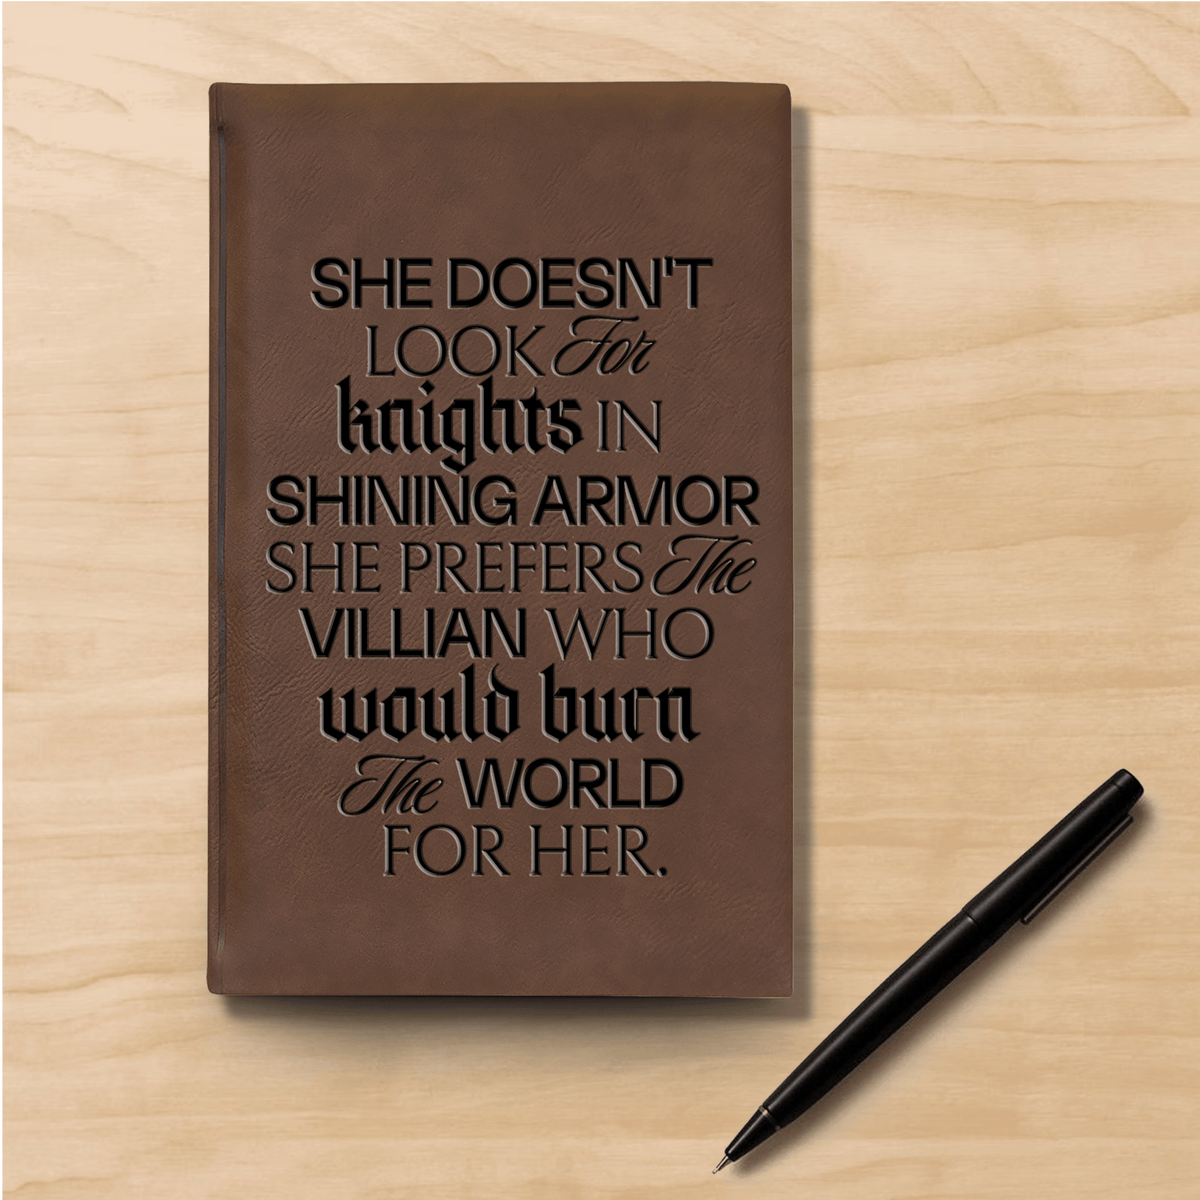 SHE DOESN'T
LOOK For
knights IN
SHINING ARMOR
SHE PREFERS The
VILLIAN WHO
would burn
The WORLD
FOR HER.